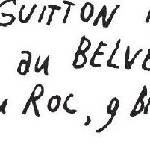 GUITTON
au BELVE
ROC, 9 B